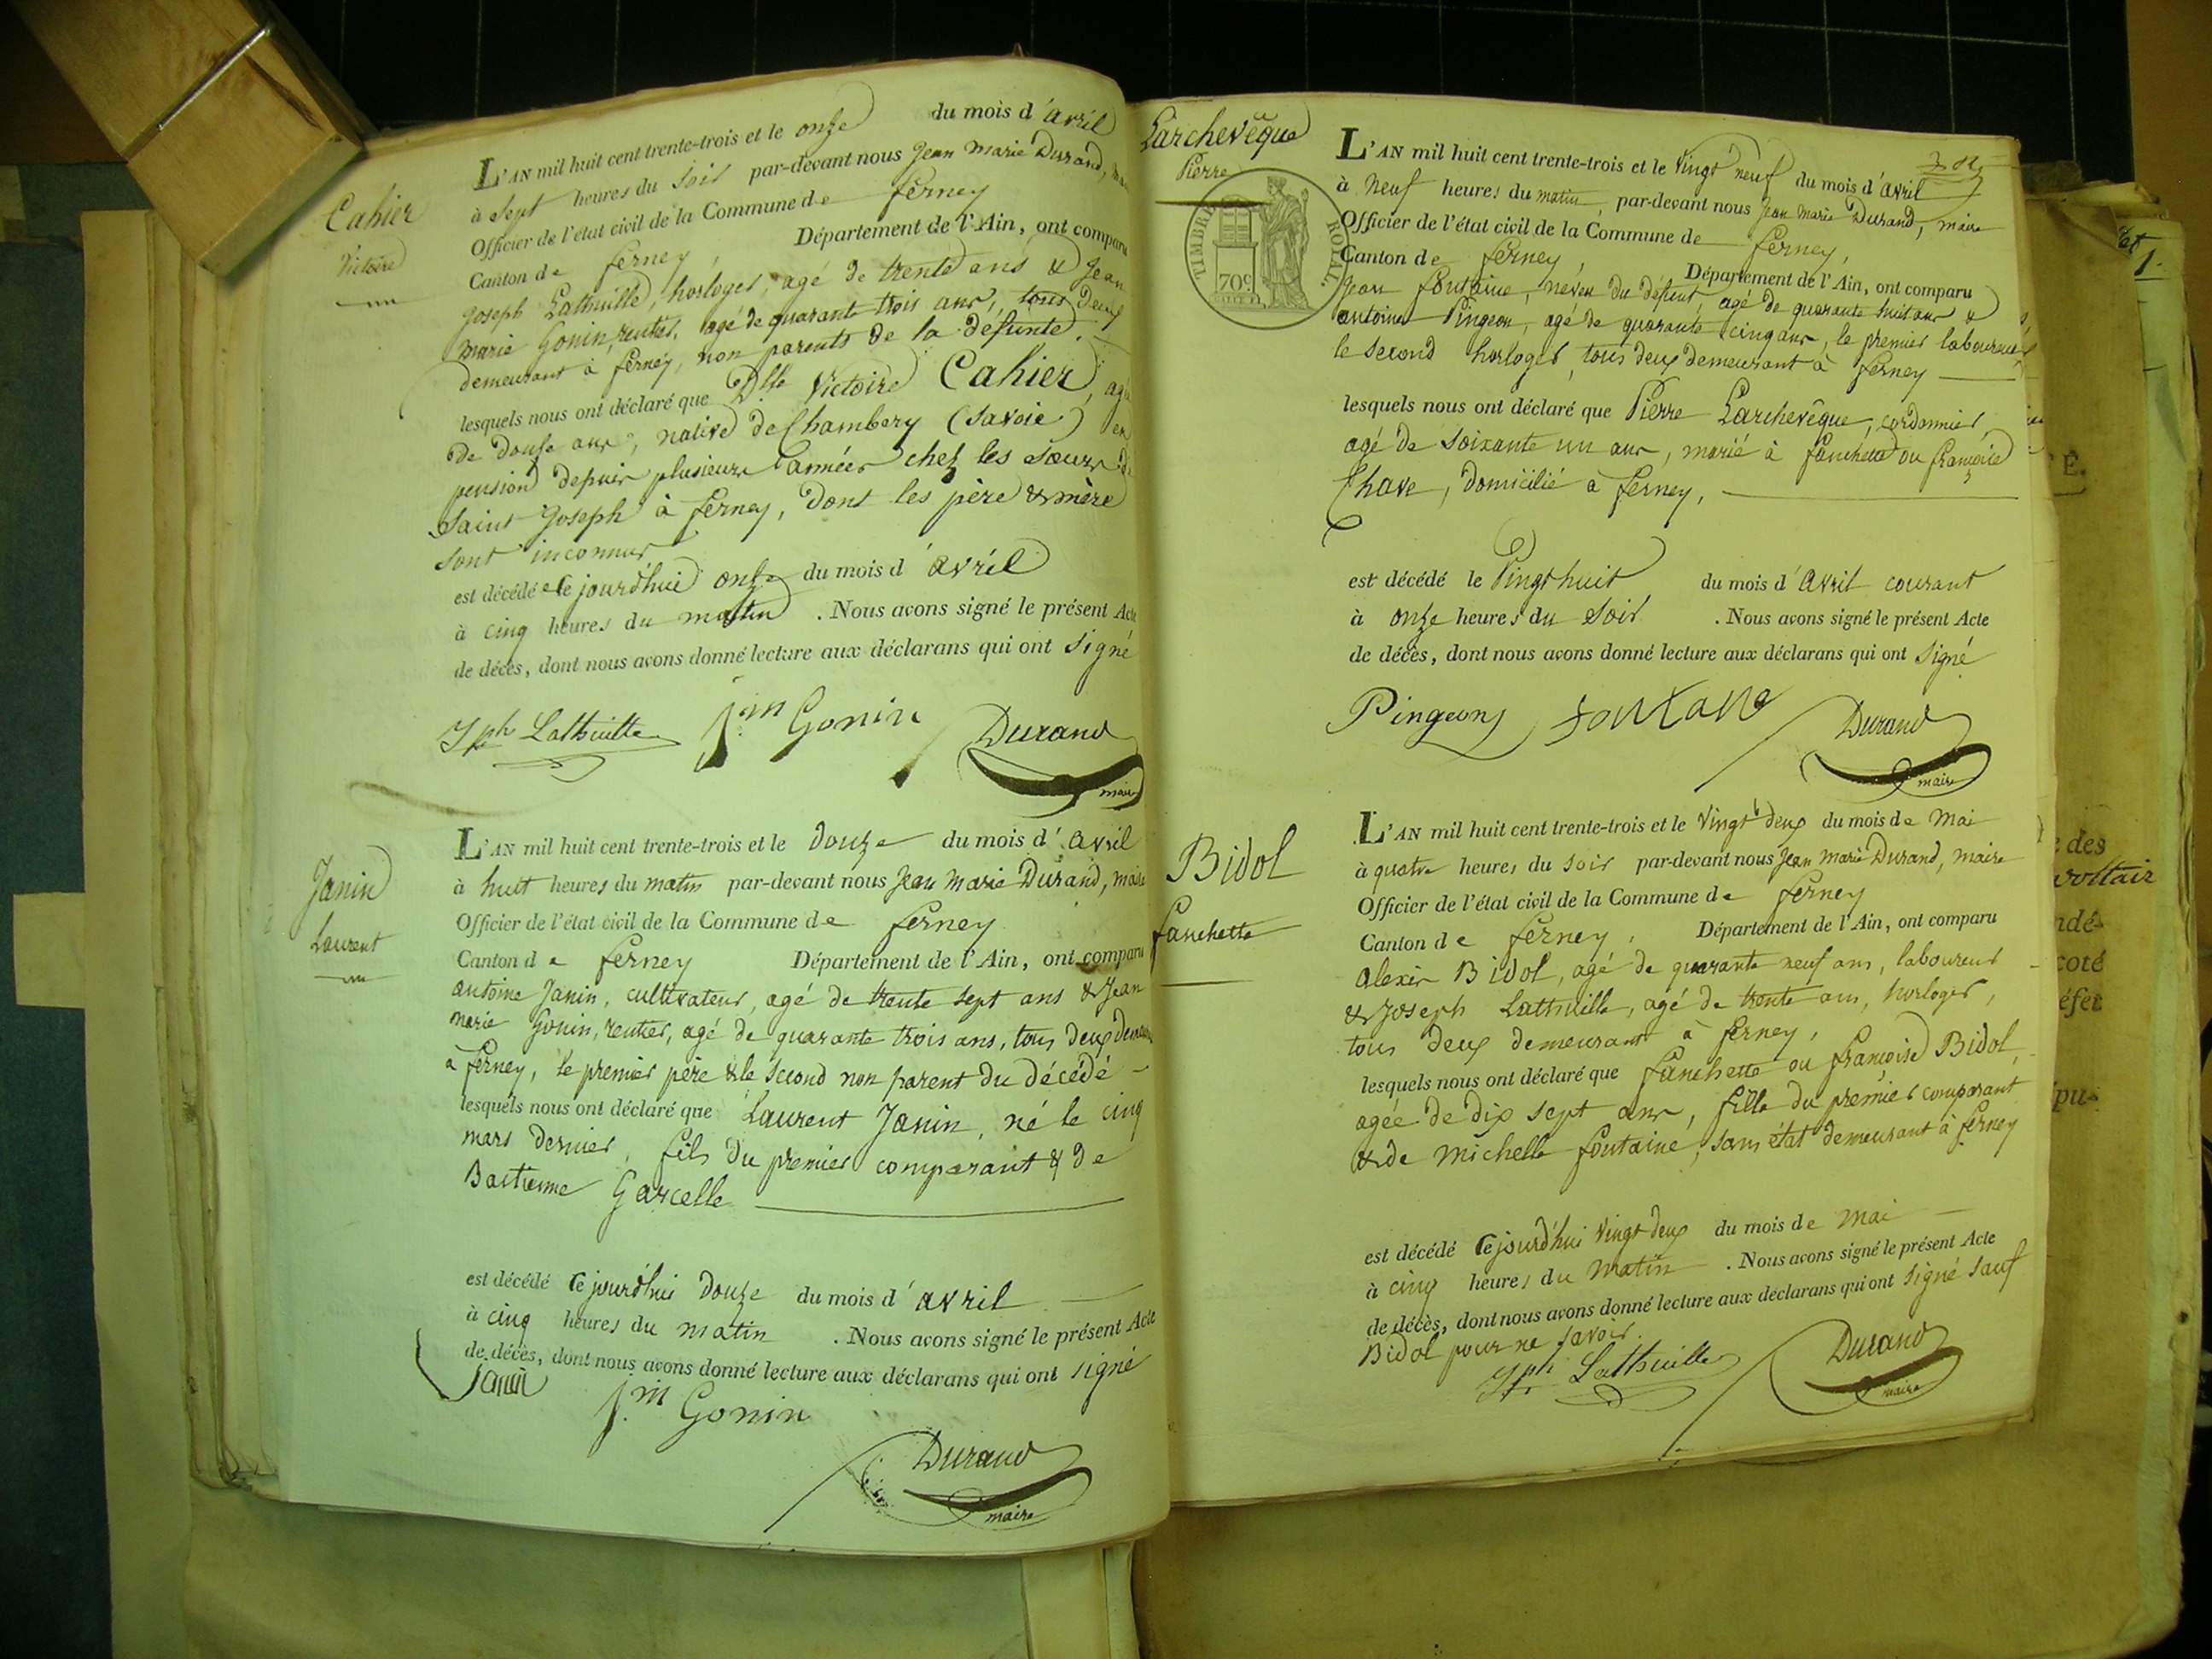 Cahier
Victoire
L'AN mil huit cent trente-trois et le onze du mois d'avril
à sept heures du soir par-devant nous Jean Marie Durand,
Officier de l'état civil de la Commune de ferney
Canton de ferney, Département de l'Ain, ont comparu
Joseph Lathuille, horloger, agé de trente ans & Jean
Marie Gonin, rentier, agé de quarante trois ans, tous deux
demeurant à ferney, non parents de la défunte.
lesquels nous ont déclaré que Dlle Victoire Cahier, agée
de douse ans, native de Chambery (Savoie) en
pension depuis plusieurs années chez les soeurs de
Saint Joseph à ferney, dont les père & mère
sont inconnus
est décédée ce jourd'hui onze du mois d'avril
à cinq heures du matin. Nous avons signé le présent Acte
de décès, dont nous avons donné lecture aux déclarans qui ont signé
Jph Lathuille J.m Gonin Durand
maire
Janin
Laurent
L'AN mil huit cent trente-trois et le douze du mois d'avril
à huit heures du matin par-devant nous Jean Marie Durand, maire
Officier de l'état civil de la Commune de ferney
Canton de ferney Département de l'Ain, ont comparu
antoine Janin, cultivateur, agé de trente sept ans & Jean
marie Gonin, rentier, agé de quarante trois ans, tous deux
à ferney, le premier père & le second non parent du décédé -
lesquels nous ont déclaré que Laurent Janin, né le cinq
mars dernier, fils du premier comparant & de
Bastienne Garcelle
est décédé ce jourd'hui douze du mois d'avril
à cinq heures du matin. Nous avons signé le présent Acte
de décès, dont nous avons donné lecture aux déclarans qui ont signé
Janin J.m Gonin
Durand
maire
Larchevêque
Pierre
TIMBRE ROYAL
70c
L'AN mil huit cent trente-trois et le Vingt neuf du mois d'avril
à neuf heures du matin, par-devant nous Jean Marie Durand, maire
Officier de l'état civil de la Commune de ferney,
Canton de ferney, Département de l'Ain, ont comparu
Jean fontaine, néveu du défunt, agé de quarante huit ans &
antoine Pingeon, agé de quarante cinq ans, le premier laboureur
le second horloger, tous deux demeurant à ferney
lesquels nous ont déclaré que Pierre Larchevêque, cordonnier,
agé de soixante un ans, marié à fanchette ou françoise
Chave, domicilié à ferney,
est décédé le Vingt huit du mois d'avril courant
à onze heures du soir. Nous avons signé le présent Acte
de décès, dont nous avons donné lecture aux déclarans qui ont signé
Pingeon fontane Durand
maire
Bidol
fanchette
L'AN mil huit cent trente-trois et le Vingt deux du mois de mai
à quatre heures du soir par-devant nous Jean Marie Durand, maire
Officier de l'état civil de la Commune de ferney
Canton de ferney, Département de l'Ain, ont comparu
alexis Bidol, agé de quarante neuf ans, laboureur
& Joseph Lathuille, agé de trente ans, horloger,
tous deux demeurant à ferney,
lesquels nous ont déclaré que fanchette ou françoise Bidol,
agée de dix sept ans, fille du premier comparant
& de michelle fontaine, sans état demeurant à ferney
est décédé ce jourd'hui Vingt deux du mois de mai
à cinq heures du matin. Nous avons signé le présent Acte
de décès, dont nous avons donné lecture aux déclarans qui ont signé sauf
Bidol pour ne savoir.
Jph Lathuille Durand
maire
É.
des
voltair
ndé-
coté
éfet
pu-